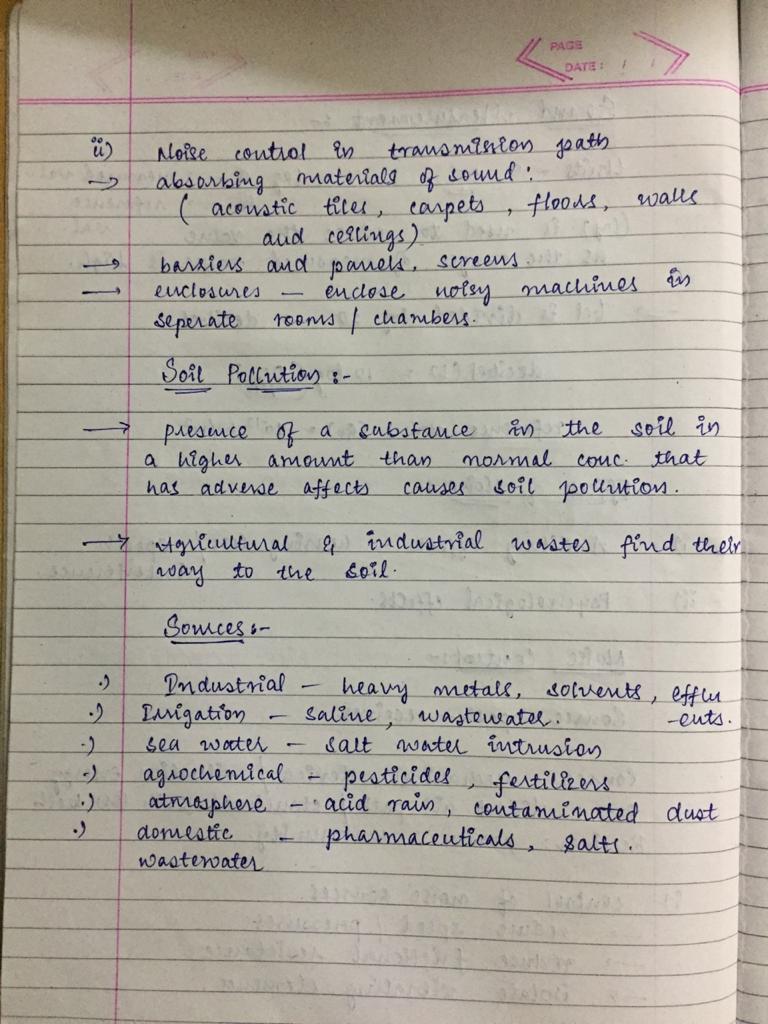 PAGE
DATE: / /
ii) Noise control in transmission path
→ absorbing materials of sound:
( acoustic tiles, carpets, floods, walls
and ceilings)
→ barriers and panels, screens
→ enclosures - enclose noisy machines in
seperate rooms / chambers.
Soil Pollution :-
→ presence of a substance in the soil in
a higher amount than normal conc. that
has adverse affects causes soil pollution.
→ Agricultural & industrial wastes find their
way to the soil.
Sources :-
.) Industrial - heavy metals, solvents, efflu
.) Irrigation - saline, wastewater. -ents.
.) sea water - salt water intrusion
.) agrochemical - pesticides, fertilizers
.) atmosphere - acid rain, contaminated dust
.) domestic - pharmaceuticals, salts.
wastewater